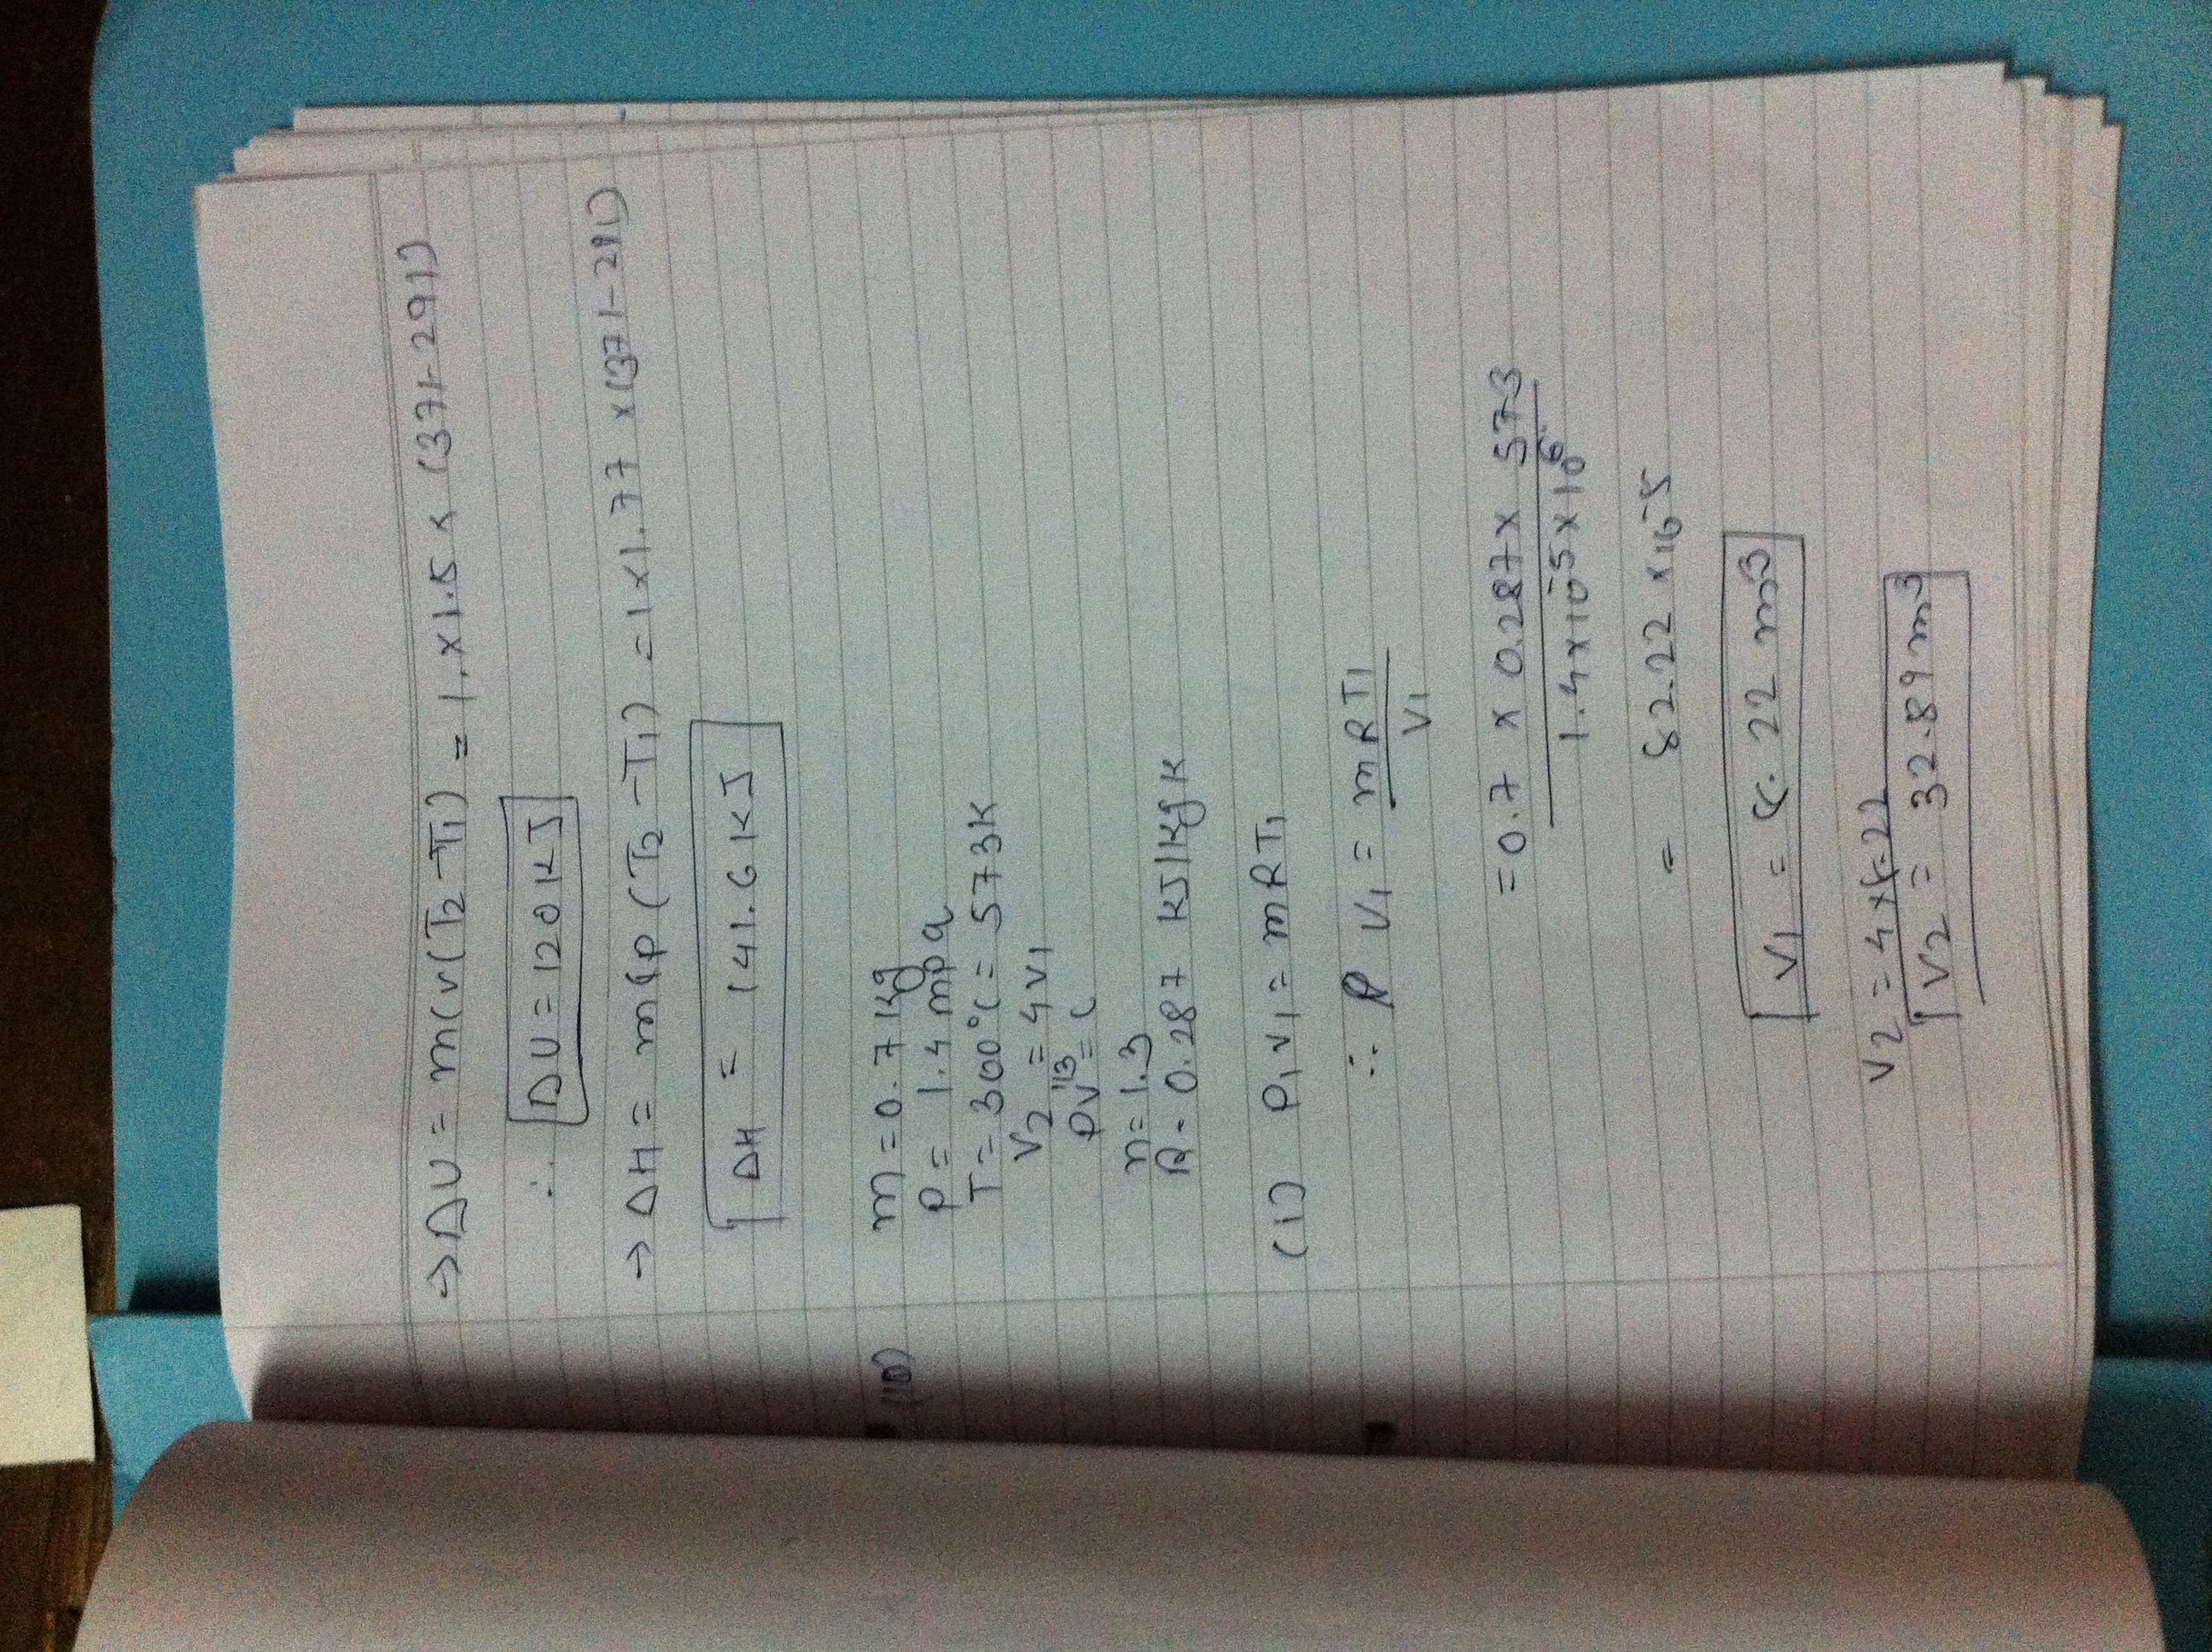 → ΔU = mCv(T2 - T1) = 1. × 1.5 × (371-291)
∴ ΔU = 120 KJ
→ ΔH = mCp (T2 - T1) = 1 × 1.77 × (371-291)
ΔH = 141.6 KJ
(10) m = 0.7 Kg
P = 1.4 mpa
T = 300°C = 573K
V2 = 4V1
PV^1.3 = C
n = 1.3
R = 0.287 KJ/Kg K
(1) P1V1 = mRT1
∴ V1 = mRT1
V1
= 0.7 × 0.287 × 573
1.4×10^-5×10^6
= 82.22 ×10^-5
V1 = 8.22 m³
V2 = 4×8.22
V2 = 32.89 m³